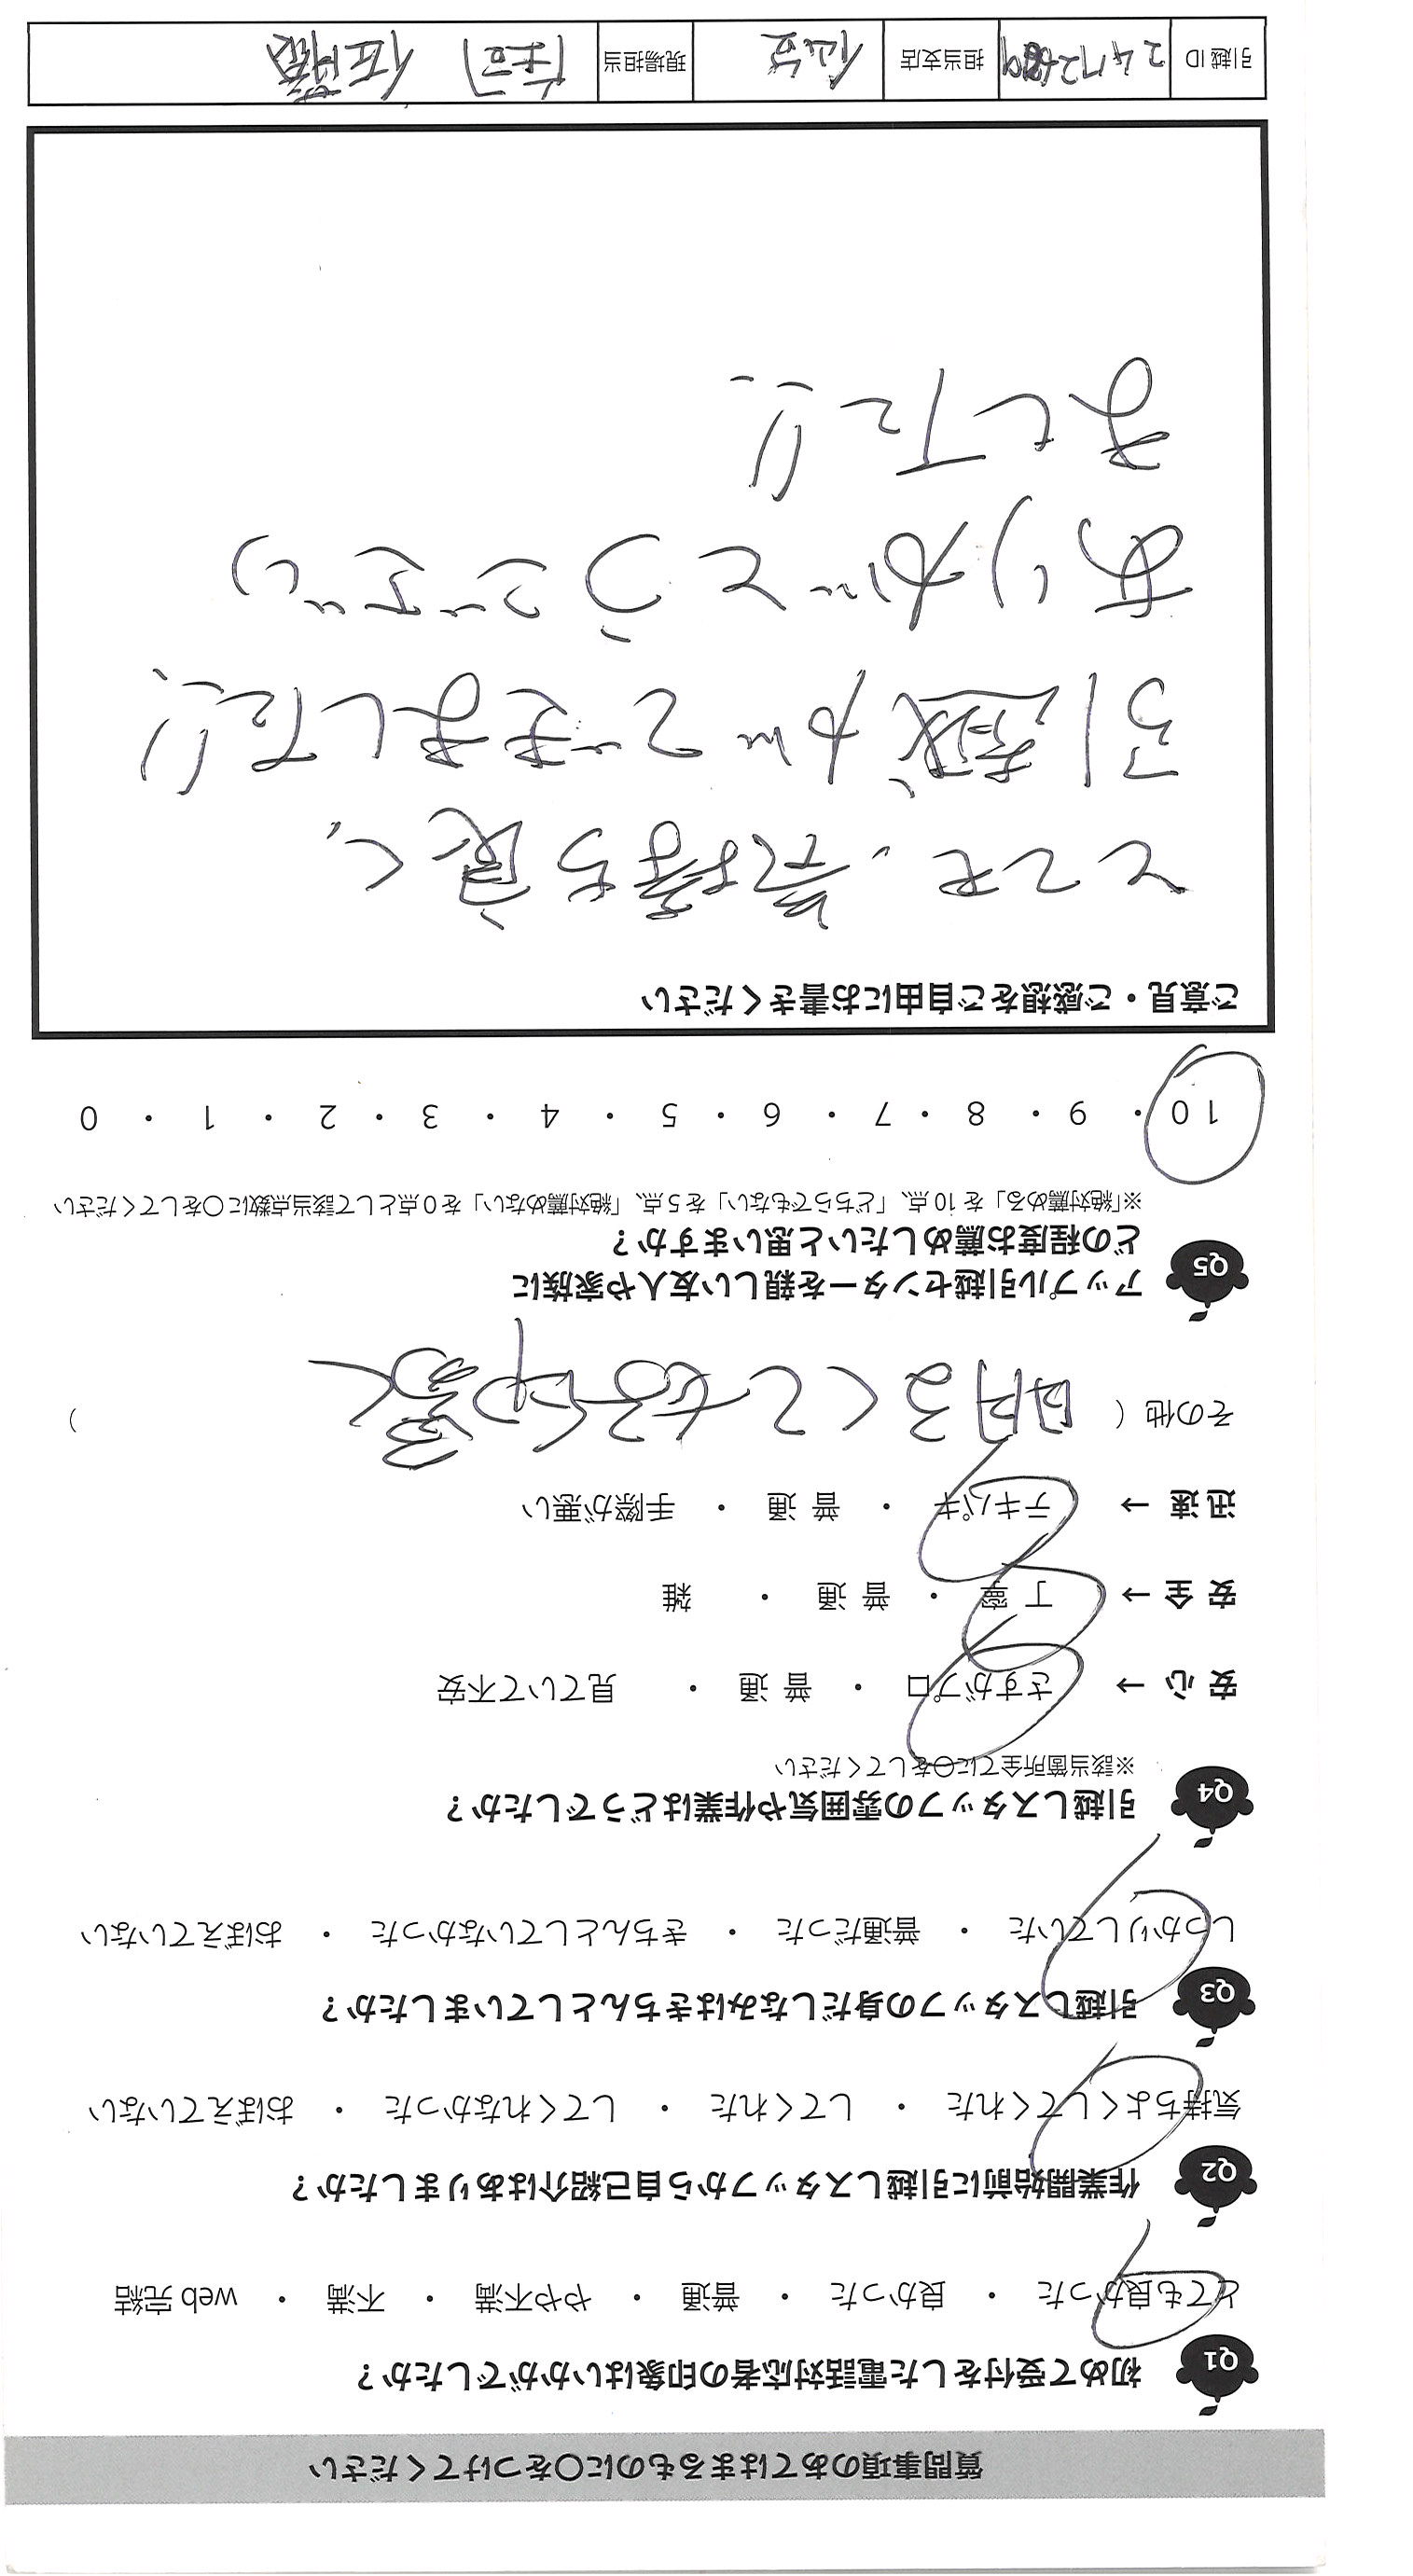 質問事項のあてはまるものに〇をつけてください
Q1 初めて受付をした電話対応者の印象はいかがでしたか？
とても良かった ・ 良かった ・ 普通 ・ やや不満 ・ 不満 ・ web 完結
Q2 作業開始前に引越しスタッフから自己紹介はありましたか？
気持ちよくしてくれた ・ してくれた ・ してくれなかった ・ おぼえていない
Q3 引越しスタッフの身だしなみはきちんとしていましたか？
しっかりしていた ・ 普通だった ・ きちんとしていなかった ・ おぼえていない
Q4 引越しスタッフの雰囲気や作業はどうでしたか？
※該当箇所全てに〇をしてください
安 心 → さすがプロ ・ 普 通 ・ 見ていて不安
安 全 → 丁 寧 ・ 普 通 ・ 雑
迅 速 → テキパキ ・ 普 通 ・ 手際が悪い
その他（ 明るくても好印象 ）
Q5 アップル引越センターを親しい友人や家族に
どの程度お薦めしたいと思いますか？
※「絶対薦める」を 10 点、「どちらでもない」を 5 点、「絶対薦めない」を 0 点として該当点数に〇をしてください
10 ・ 9 ・ 8 ・ 7 ・ 6 ・ 5 ・ 4 ・ 3 ・ 2 ・ 1 ・ 0
ご意見・ご感想をご自由にお書きください
とても、気持ち良く、
引越ができました!!
ありがとうござい
ました!!
引越 ID 担当支店 仙台 現場担当 庄司 佐藤